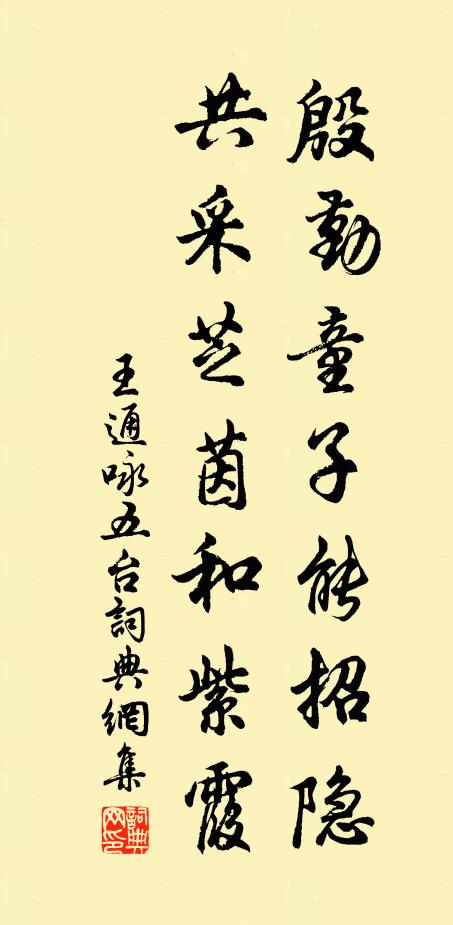 殷勤童子能招隐
共采芝茵和紫霞
王通咏五台詞典網集
詞典
网印